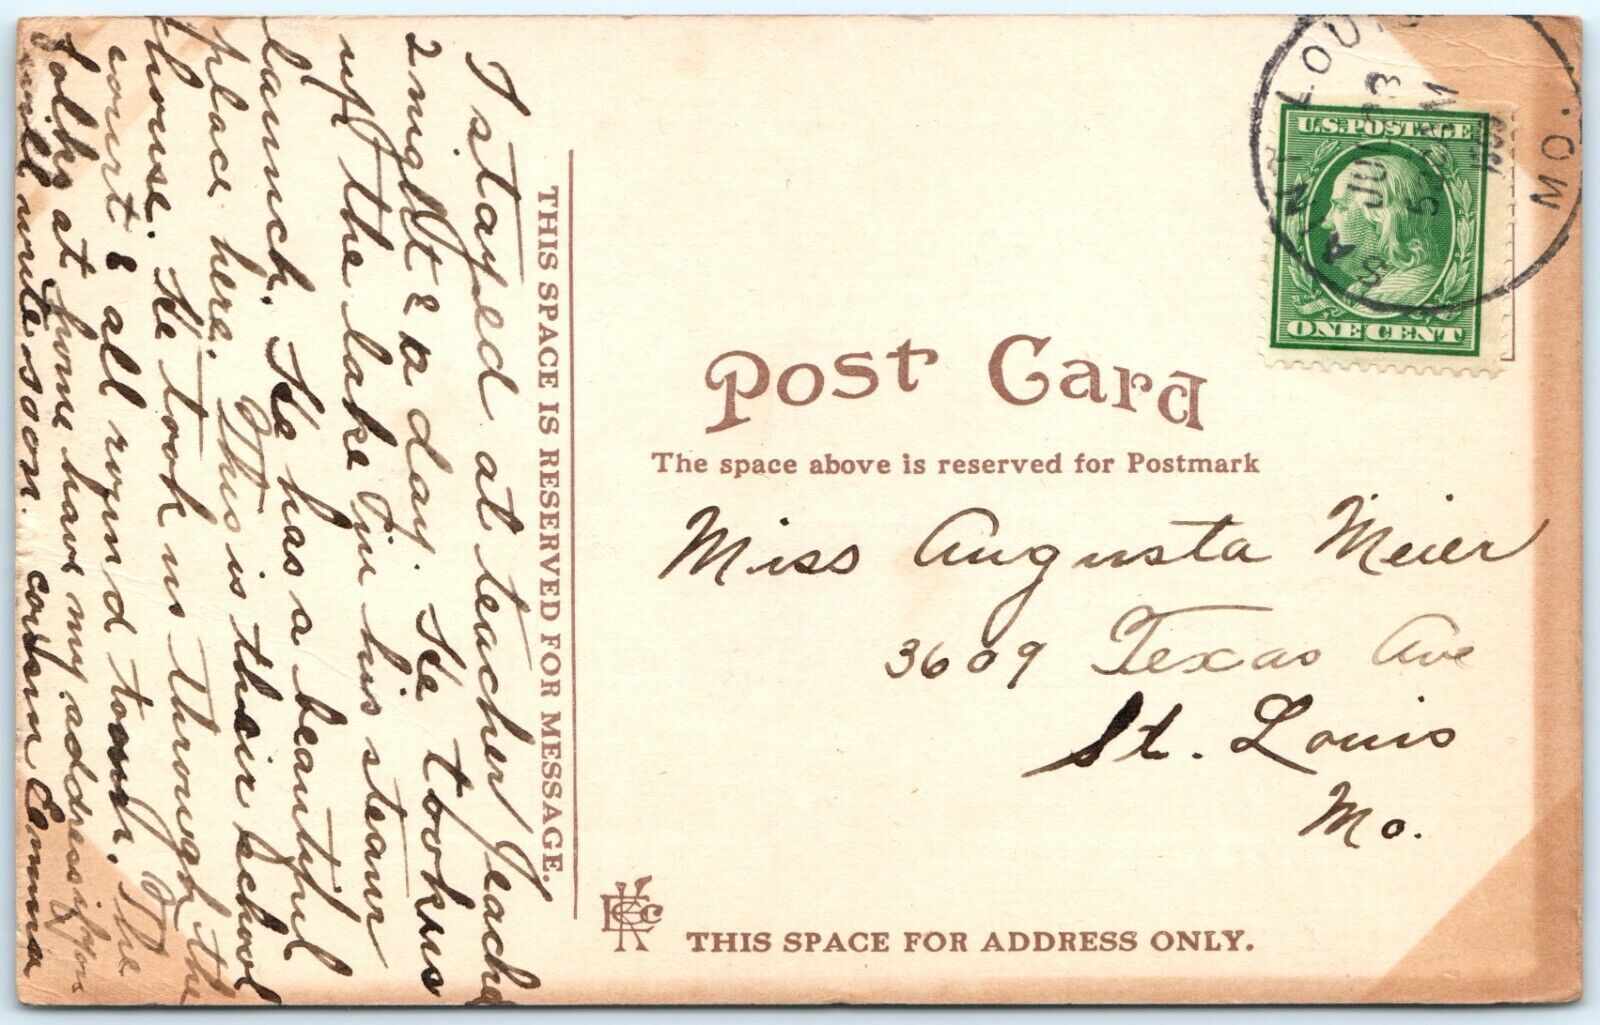 I stayed at teacher Jeache
2 night & a day. He took us
up the lake in his steam
launch. He has a beautiful
place here. This is their School
house. He took us through the
court & all round town. The
folks at home have my address if you
will write soon. cousin Emma
THIS SPACE IS RESERVED FOR MESSAGE.
SAINT LOUIS MO.
JUL 23
5
U.S. POSTAGE
ONE CENT
Post Card
The space above is reserved for Postmark
Miss Augusta Meier
3609 Texas Ave
St. Louis
Mo.
THIS SPACE FOR ADDRESS ONLY.